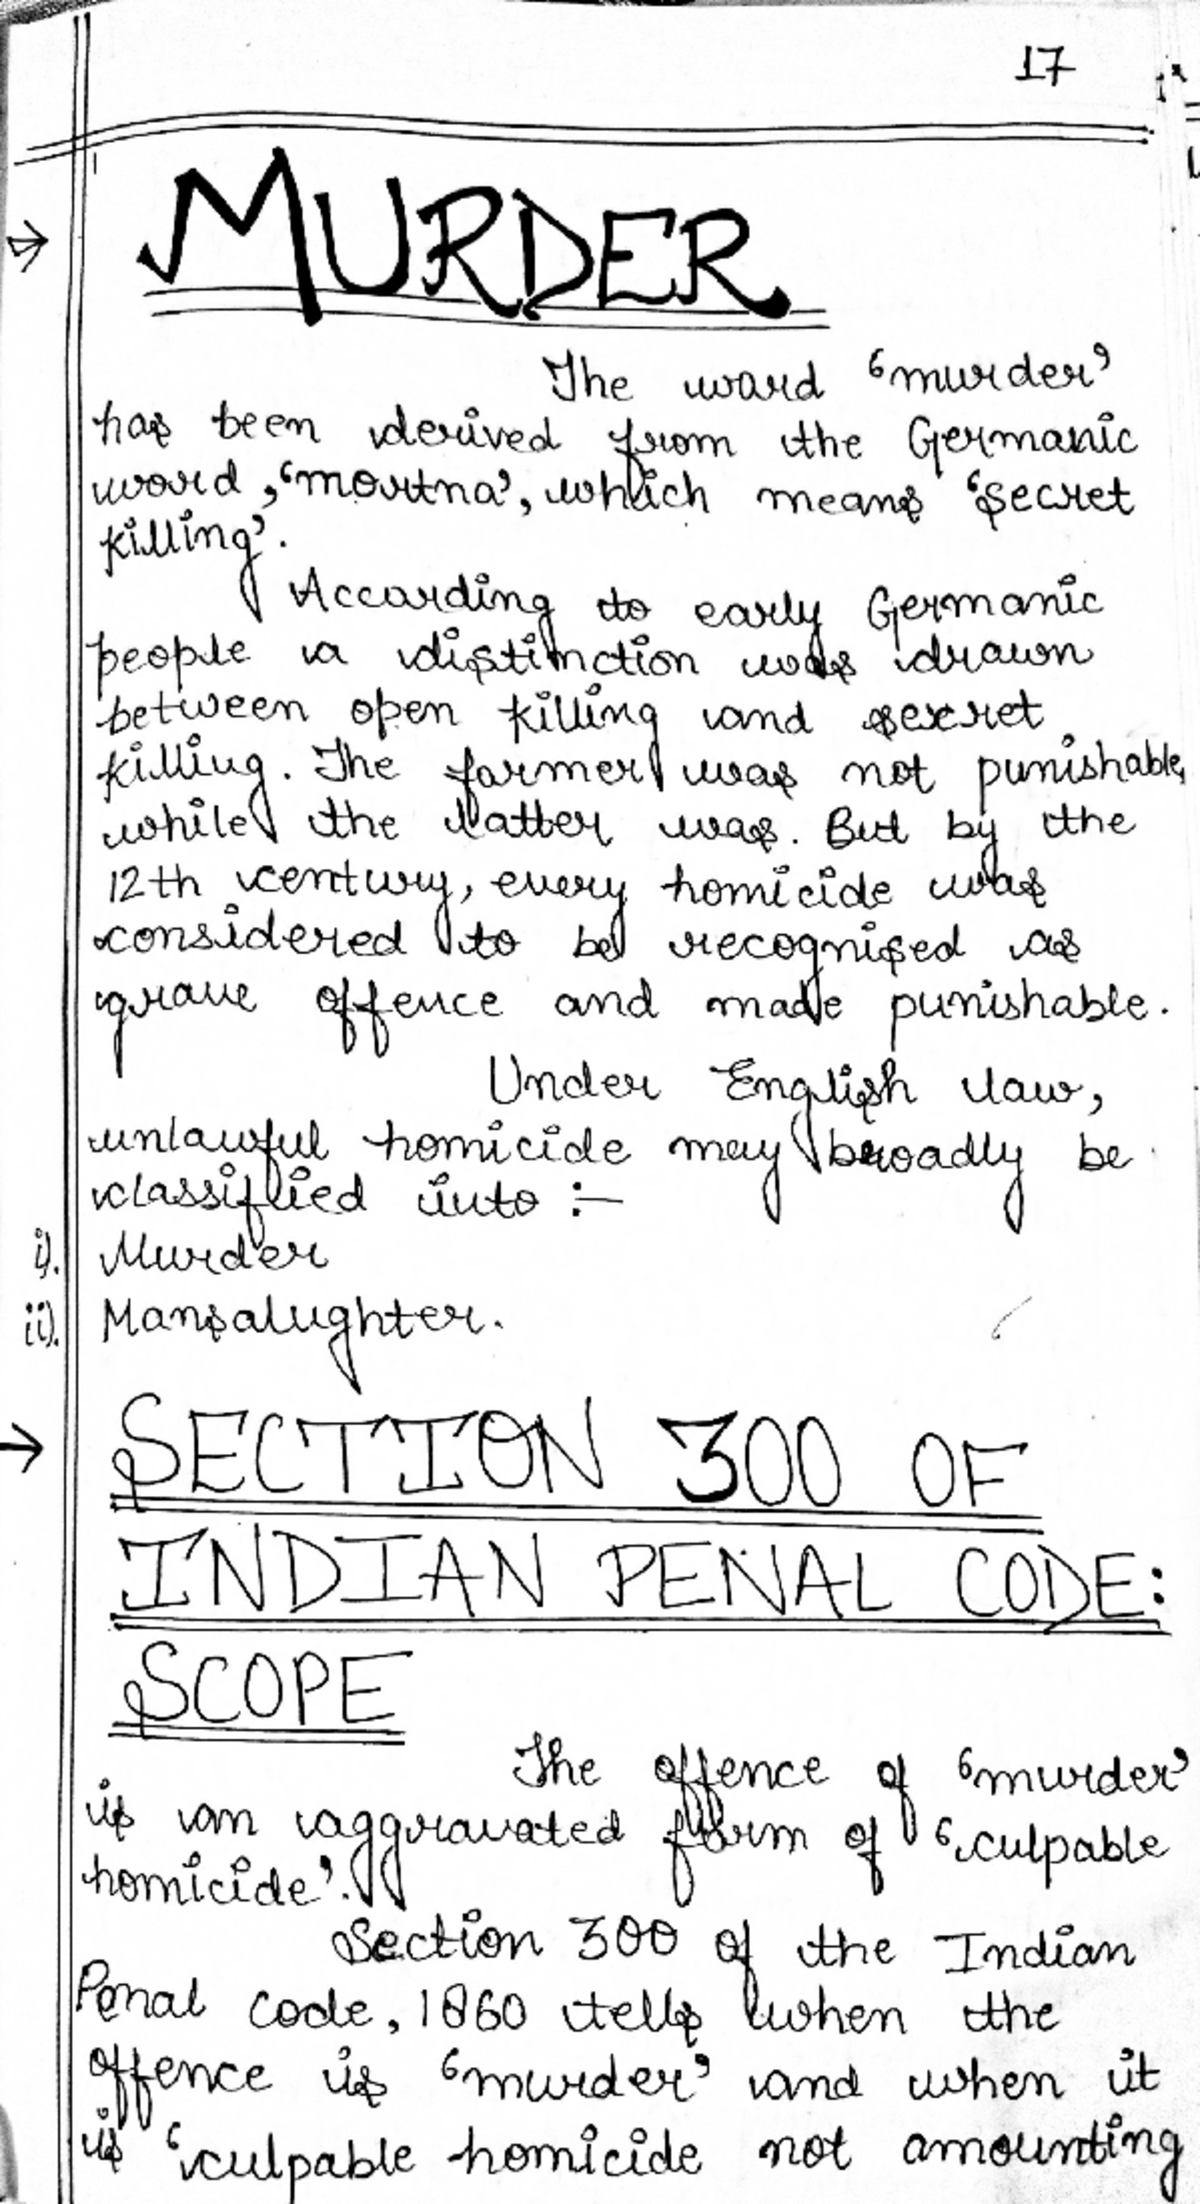 17
→ MURDER
The word 'murder'
has been derived from the Germanic
word, 'mortna', which means 'secret
killing'.
According to early Germanic
people a distinction was drawn
between open killing and secret
killing. The former was not punishable,
while the latter was. But by the
12th century, every homicide was
considered to be recognised as
grave offence and made punishable.
Under English law,
unlawful homicide may broadly be
classified into :-
i). Murder
ii). Mansalughter.
→ SECTION 300 OF
INDIAN PENAL CODE:
SCOPE
The offence of 'murder'
is an aggravated form of 'culpable
homicide'.
Section 300 of the Indian
Penal code, 1860 tells when the
offence is 'murder' and when it
is 'culpable homicide not amounting